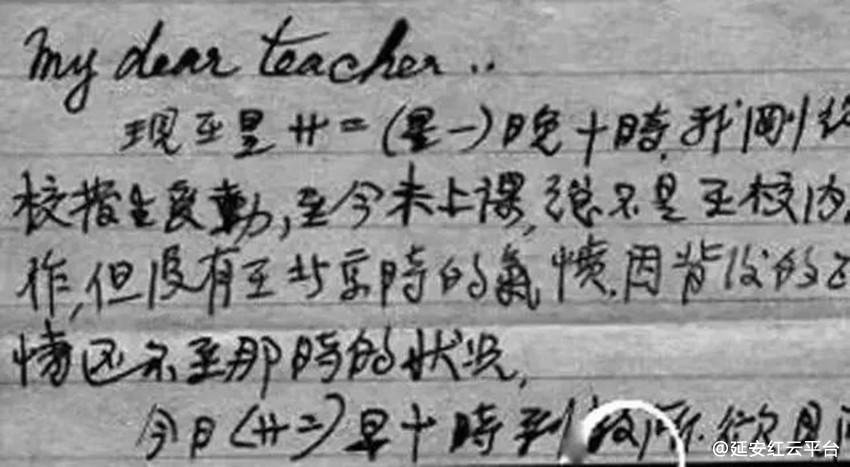 My dear teacher..
现在是廿二(星一)晚十時,我刚
校发生变動,至今未上課,總不是在校内,
作,但没有在北京時的氣愤,因背後的
情还不至那時的状况,
今日(廿二)早十時到
@延安红云平台